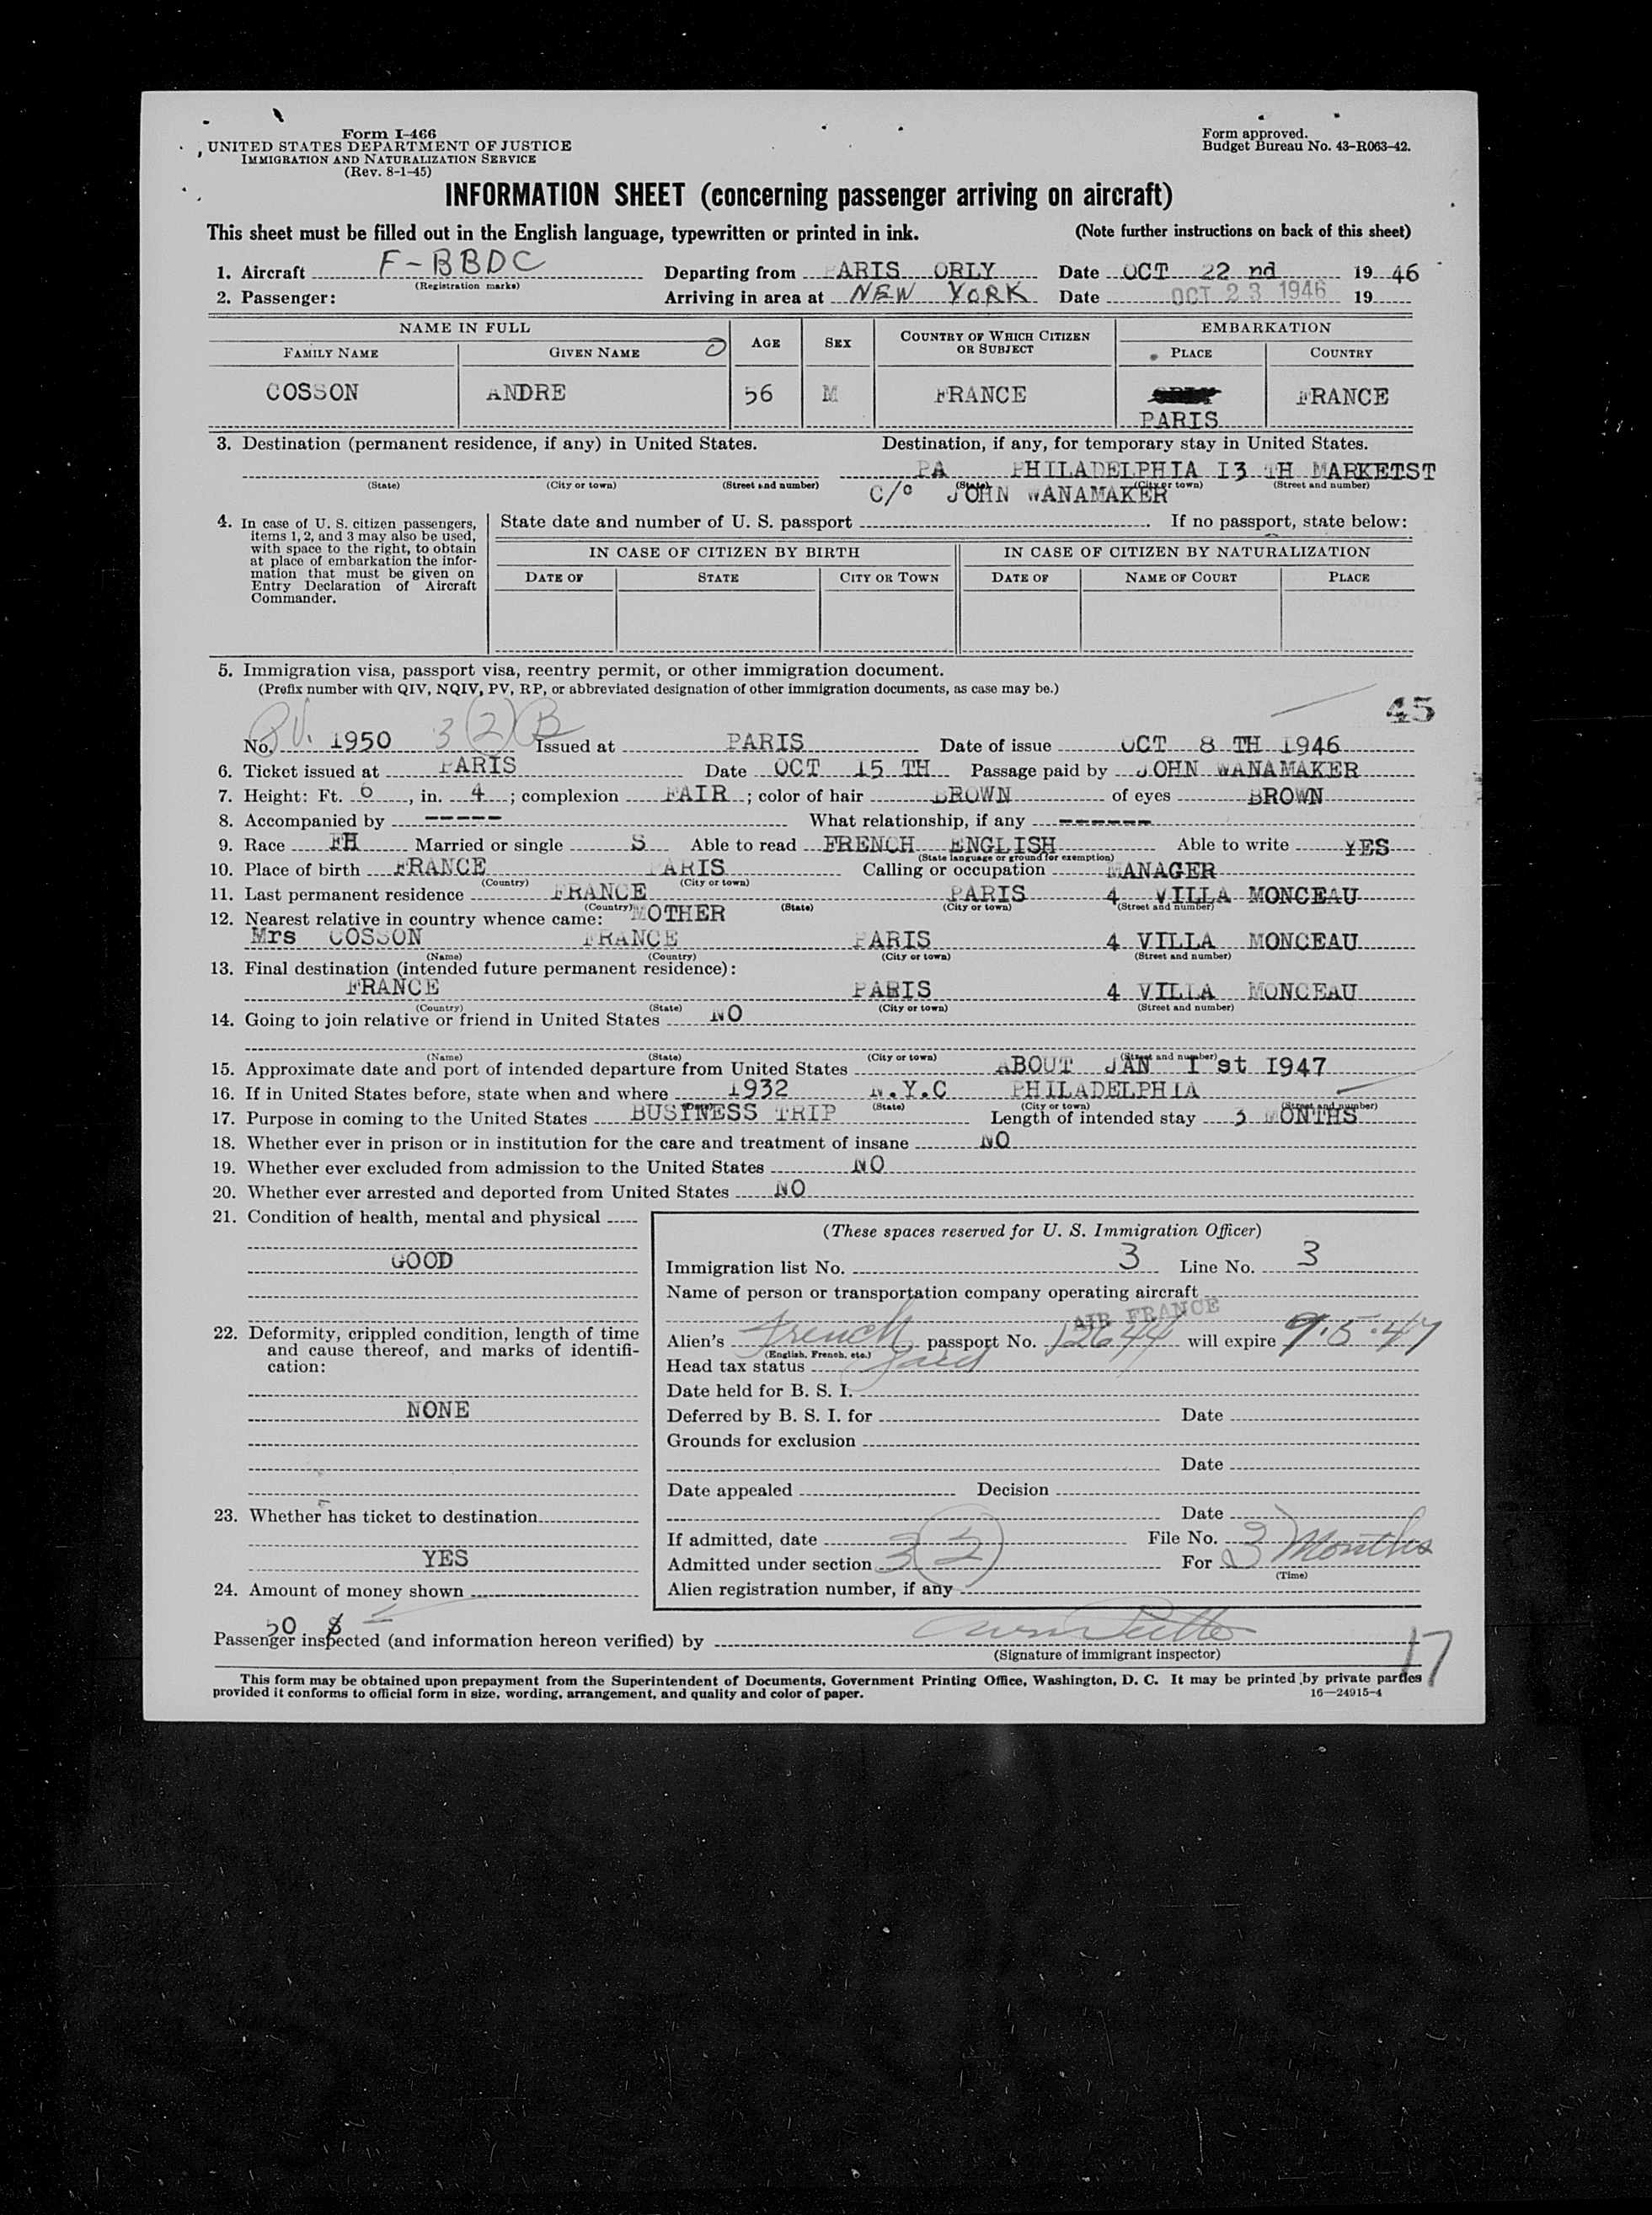 Form I-466
UNITED STATES DEPARTMENT OF JUSTICE
IMMIGRATION AND NATURALIZATION SERVICE
(Rev. 8-1-45)
Form approved.
Budget Bureau No. 43-R063-42.
INFORMATION SHEET (concerning passenger arriving on aircraft)
This sheet must be filled out in the English language, typewritten or printed in ink. (Note further instructions on back of this sheet)
1. Aircraft F-BBDC Departing from PARIS ORLY Date OCT 22 nd 19 46
(Registration marks)
2. Passenger: Arriving in area at NEW YORK Date OCT 23 1946 19
NAME IN FULL AGE SEX COUNTRY OF WHICH CITIZEN OR SUBJECT EMBARKATION
FAMILY NAME GIVEN NAME PLACE COUNTRY
COSSON ANDRE 56 M FRANCE FRANCE
PARIS
3. Destination (permanent residence, if any) in United States. Destination, if any, for temporary stay in United States.
PA PHILADELPHIA I3 TH MARKETST
(State) (City or town) (Street and number) (State) (City or town) (Street and number)
C/o JOHN WANAMAKER
4. In case of U. S. citizen passengers, items 1, 2, and 3 may also be used, with space to the right, to obtain at place of embarkation the information that must be given on Entry Declaration of Aircraft Commander.
State date and number of U. S. passport If no passport, state below:
IN CASE OF CITIZEN BY BIRTH IN CASE OF CITIZEN BY NATURALIZATION
DATE OF STATE CITY OR TOWN DATE OF NAME OF COURT PLACE
5. Immigration visa, passport visa, reentry permit, or other immigration document.
(Prefix number with QIV, NQIV, PV, RP, or abbreviated designation of other immigration documents, as case may be.)
45
No. P.V. 1950 3(2)B Issued at PARIS Date of issue OCT 8 TH 1946
6. Ticket issued at PARIS Date OCT 15 TH Passage paid by JOHN WANAMAKER
7. Height: Ft. 6, in. 4; complexion FAIR; color of hair BROWN of eyes BROWN
8. Accompanied by ----- What relationship, if any ------
9. Race FH Married or single S Able to read FRENCH ENGLISH Able to write YES
(State language or ground for exemption)
10. Place of birth FRANCE PARIS Calling or occupation MANAGER
(Country) (City or town)
11. Last permanent residence FRANCE PARIS 4 VILLA MONCEAU
(Country) (State) (City or town) (Street and number)
12. Nearest relative in country whence came: MOTHER
Mrs COSSON FRANCE PARIS 4 VILLA MONCEAU
(Name) (Country) (City or town) (Street and number)
13. Final destination (intended future permanent residence):
FRANCE PARIS 4 VILLA MONCEAU
(Country) (State) (City or town) (Street and number)
14. Going to join relative or friend in United States NO
(Name) (State) (City or town) (Street and number)
15. Approximate date and port of intended departure from United States ABOUT JAN I st I947
16. If in United States before, state when and where 1932 N.Y.C PHILADELPHIA
(State) (City or town) (Street and number)
17. Purpose in coming to the United States BUSINESS TRIP Length of intended stay 3 MONTHS
18. Whether ever in prison or in institution for the care and treatment of insane NO
19. Whether ever excluded from admission to the United States NO
20. Whether ever arrested and deported from United States NO
21. Condition of health, mental and physical
GOOD
22. Deformity, crippled condition, length of time and cause thereof, and marks of identification:
NONE
23. Whether has ticket to destination
YES
24. Amount of money shown
50 $
(These spaces reserved for U. S. Immigration Officer)
Immigration list No. 3 Line No. 3
Name of person or transportation company operating aircraft
AIR FRANCE
Alien's French passport No. 12644 will expire 9.5.47
(English, French, etc.)
Head tax status paid
Date held for B. S. I.
Deferred by B. S. I. for Date
Grounds for exclusion
Date
Date appealed Decision
Date
If admitted, date File No.
Admitted under section 3(2) For 3 Months
(Time)
Alien registration number, if any
Passenger inspected (and information hereon verified) by
(Signature of immigrant inspector)
17
This form may be obtained upon prepayment from the Superintendent of Documents, Government Printing Office, Washington, D. C. It may be printed by private parties
provided it conforms to official form in size, wording, arrangement, and quality and color of paper. 16—24915-4